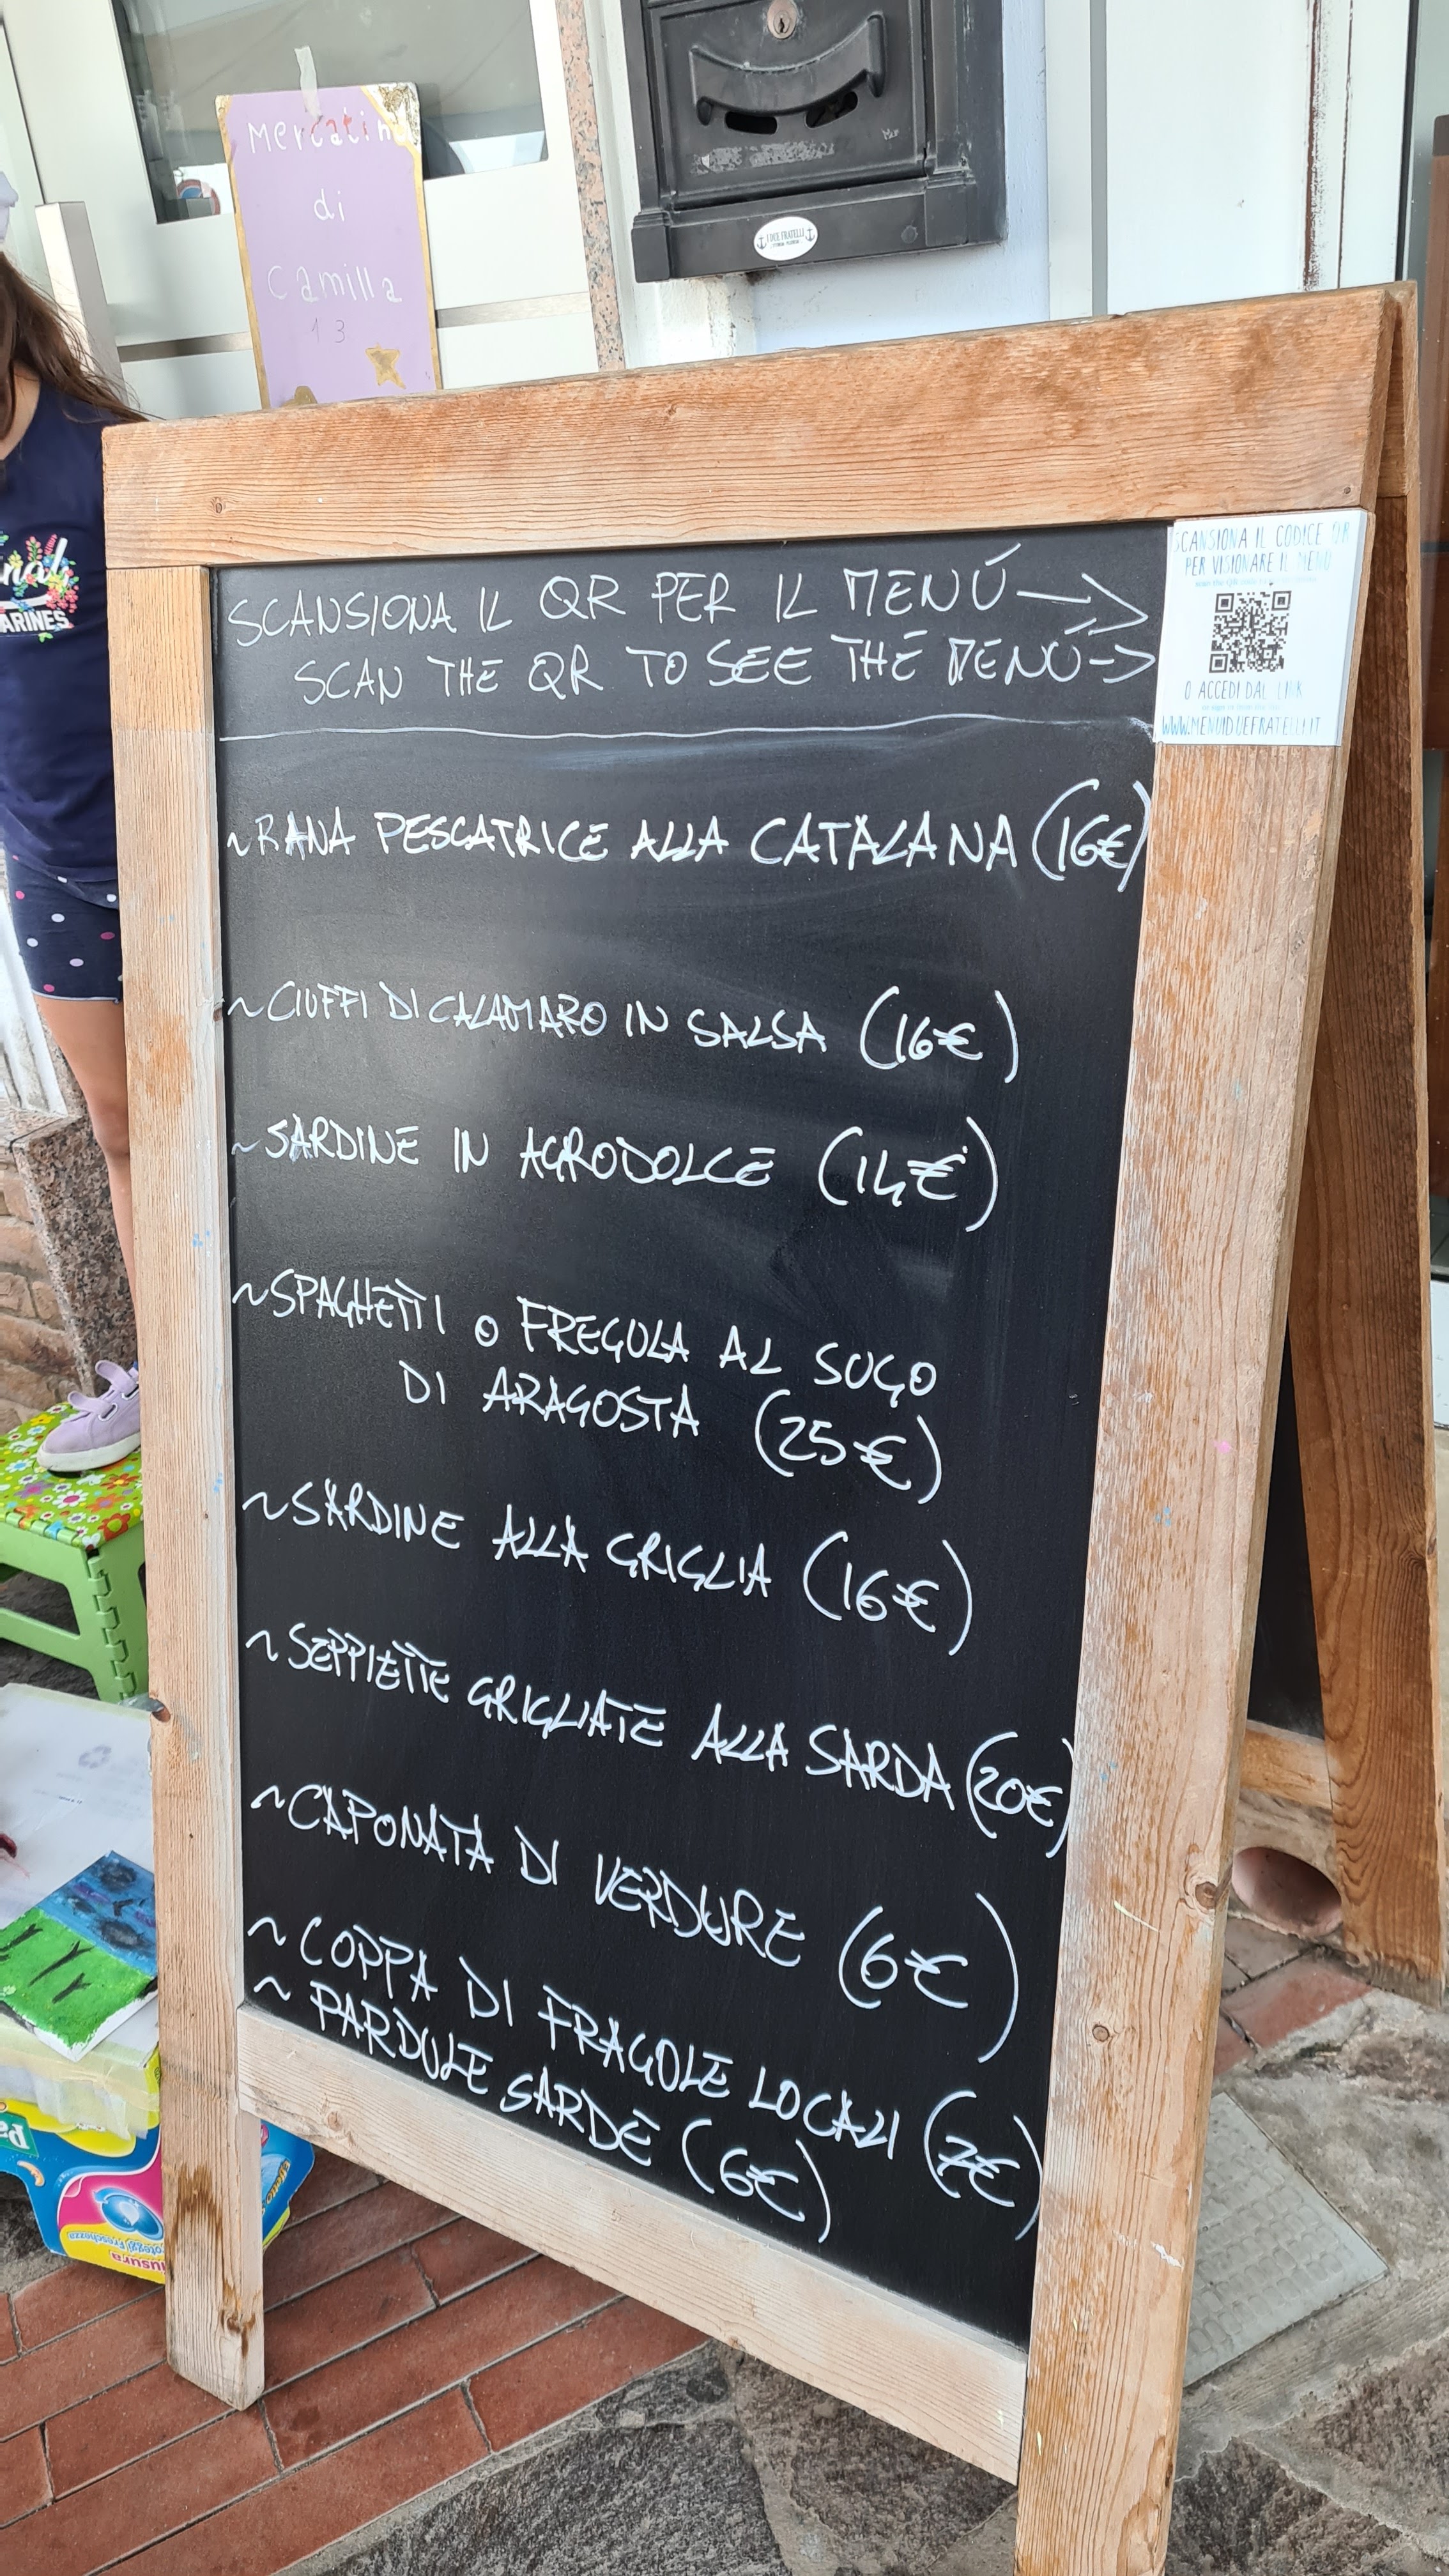 Mercatino
di
Camilla
13
I DUE FRATELLI
SCANSIONA IL QR PER IL MENÚ →
SCAN THE QR TO SEE THE MENÚ →
SCANSIONA IL CODICE QR
PER VISIONARE IL MENU
O ACCEDI DAL LINK
WWW.MENUIDUEFRATELLI.IT
~ RANA PESCATRICE ALLA CATALANA (16€)
~ CIUFFI DI CALAMARO IN SALSA (16€)
~ SARDINE IN AGRODOLCE (14€)
~ SPAGHETTI O FREGULA AL SUGO
DI ARAGOSTA (25€)
~ SARDINE ALLA GRIGLIA (16€)
~ SEPPIETTE GRIGLIATE ALLA SARDA (20€)
~ CAPONATA DI VERDURE (6€)
~ COPPA DI FRAGOLE LOCALI (7€)
~ PARDULE SARDE (6€)
ARINES